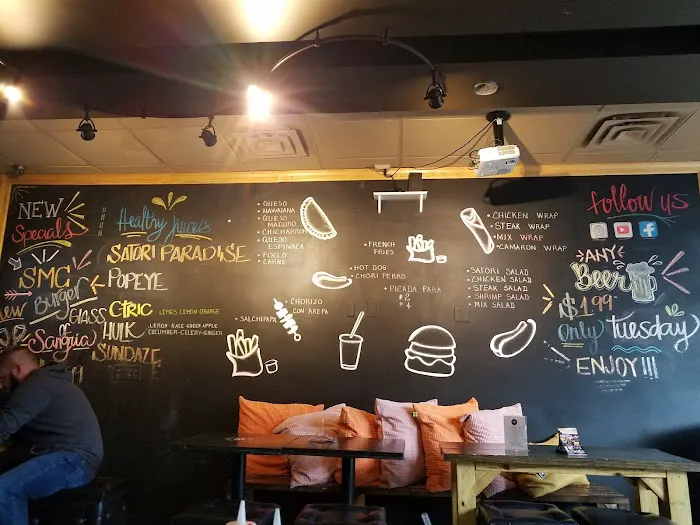 NEW
Specials
SMC
New
Burger
GLASS
Sangria
Healthy Juices
SATORI PARADISE
POPEYE
CTRIC LIMES LEMON ORANGE
HULK LEMON KALE GREEN APPLE
CUCUMBER-CELERY-GINGER
SUNDAZE
• QUESO
• HAWAIANA
• QUESO
MADURO
• CHICHARRON
• QUESO
ESPINACA
• POLLO
• CARNE
• FRENCH
FRIES
• HOT DOG
• CHORI PERRO
• PICADA PARA
• 2
• 4
• CHORIZO
CON AREPA
• SALCHIPAPA
• CHICKEN WRAP
• STEAK WRAP
• MIX WRAP
• CAMARON WRAP
• SATORI SALAD
• CHICKEN SALAD
• STEAK SALAD
• SHRIMP SALAD
• MIX SALAD
follow us
ANY
Beer
$1.99
Only Tuesday
ENJOY!!!